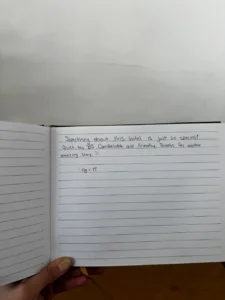 Something about this hotel is just so special!
Comfortable and friendly. Thanks for another
amazing stay. !!